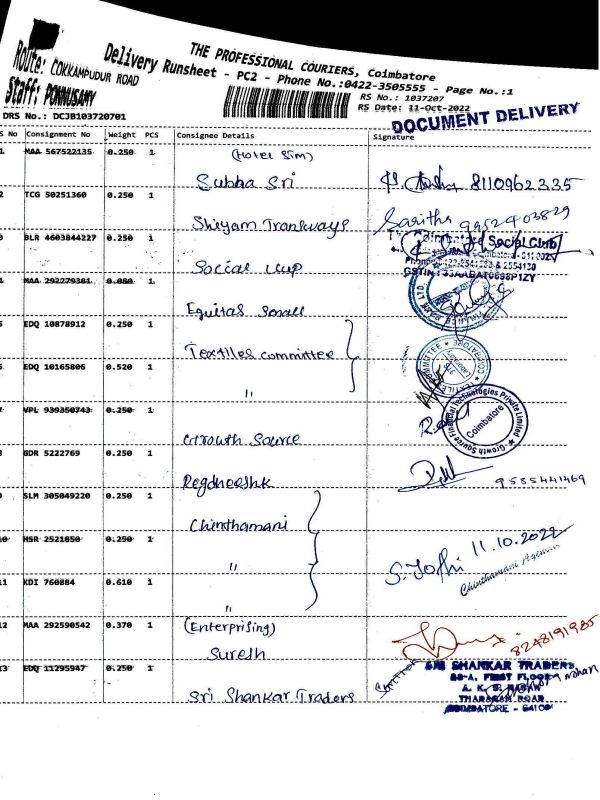 THE PROFESSIONAL COURIERS, Coimbatore
Delivery Runsheet - PC2 - Phone No.:0422-3505555 - Page No.:1
Route: COKKAMPUDUR ROAD
Staff: PONNUSAMY
RS No.: 1037207
RS Date: 11-Oct-2022
DRS No.: DCJB103720701
DOCUMENT DELIVERY
S No Consignment No Weight PCS Consignee Details Signature
1 MAA 567522135 0.250 1 (Hotel Sim)
Subha Sri 8110962335
2 TCG 50251360 0.250 1
Shiyam Tranways Saritha 9952403829
3 BLR 4603844227 0.250 1
Social Club
Social
4 MAA 292279381 0.080 1
Equitas Small
5 EDQ 10878912 0.250 1
Textiles committee
6 EDQ 10165806 0.520 1
"
7 VPL 939350743 0.250 1
Growth Source
Growth Source Financial Technologies Private Limited
Coimbatore
8 GDR 5222769 0.250 1
9585441469
9 SLM 305049220 0.250 1
Chinthamani
10 HSR 2521850 0.250 1
" S. Jothi 11.10.2022
Chinthamani Agencies
11 KDI 760884 0.610 1
"
12 MAA 292590542 0.370 1 (Enterprising)
Suresh 8248191985
13 EDQ 11295947 0.250 1
Sri Shankar Traders
SRI SHANKAR TRADERS
FIRST FLOOR
THADAGAM ROAD
COIMBATORE